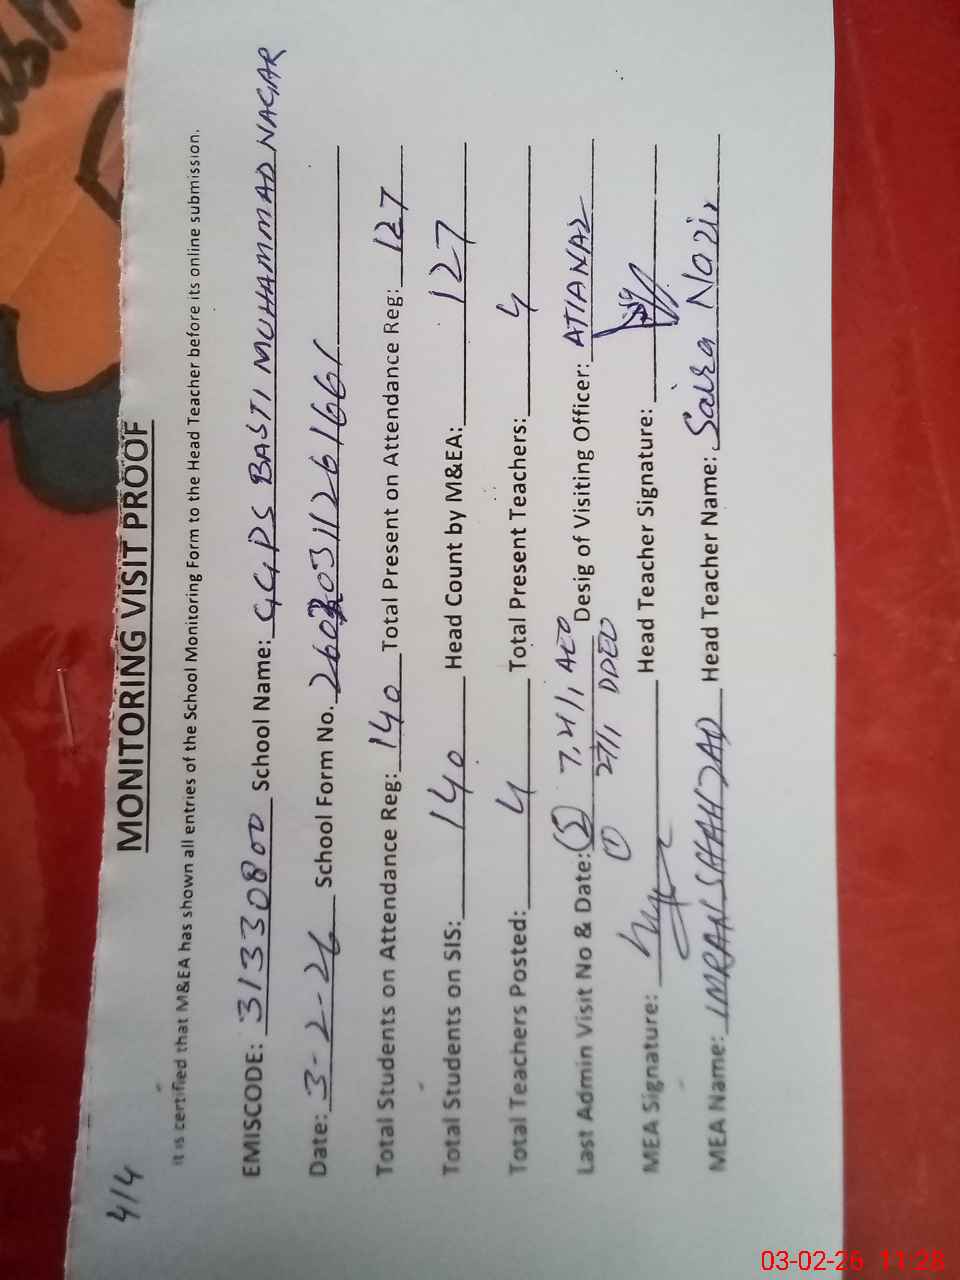 4/4
MONITORING VISIT PROOF
It is certified that M&EA has shown all entries of the School Monitoring Form to the Head Teacher before its online submission.
EMISCODE: 31330800 School Name: GGPS BASTI MUHAMMAD NAGAR
Date: 3-2-26 School Form No. 
Total Students on Attendance Reg: 140 Total Present on Attendance Reg: 127
Total Students on SIS: 140 Head Count by M&EA: 127
Total Teachers Posted: 4 Total Present Teachers: 4
Last Admin Visit No & Date: (5) AEO Desig of Visiting Officer:
(1) 27/1 DDEO
MEA Signature: Head Teacher Signature:
MEA Name: IMRAN SHAHZAD Head Teacher Name: Saira Nazir
03-02-26 11:28